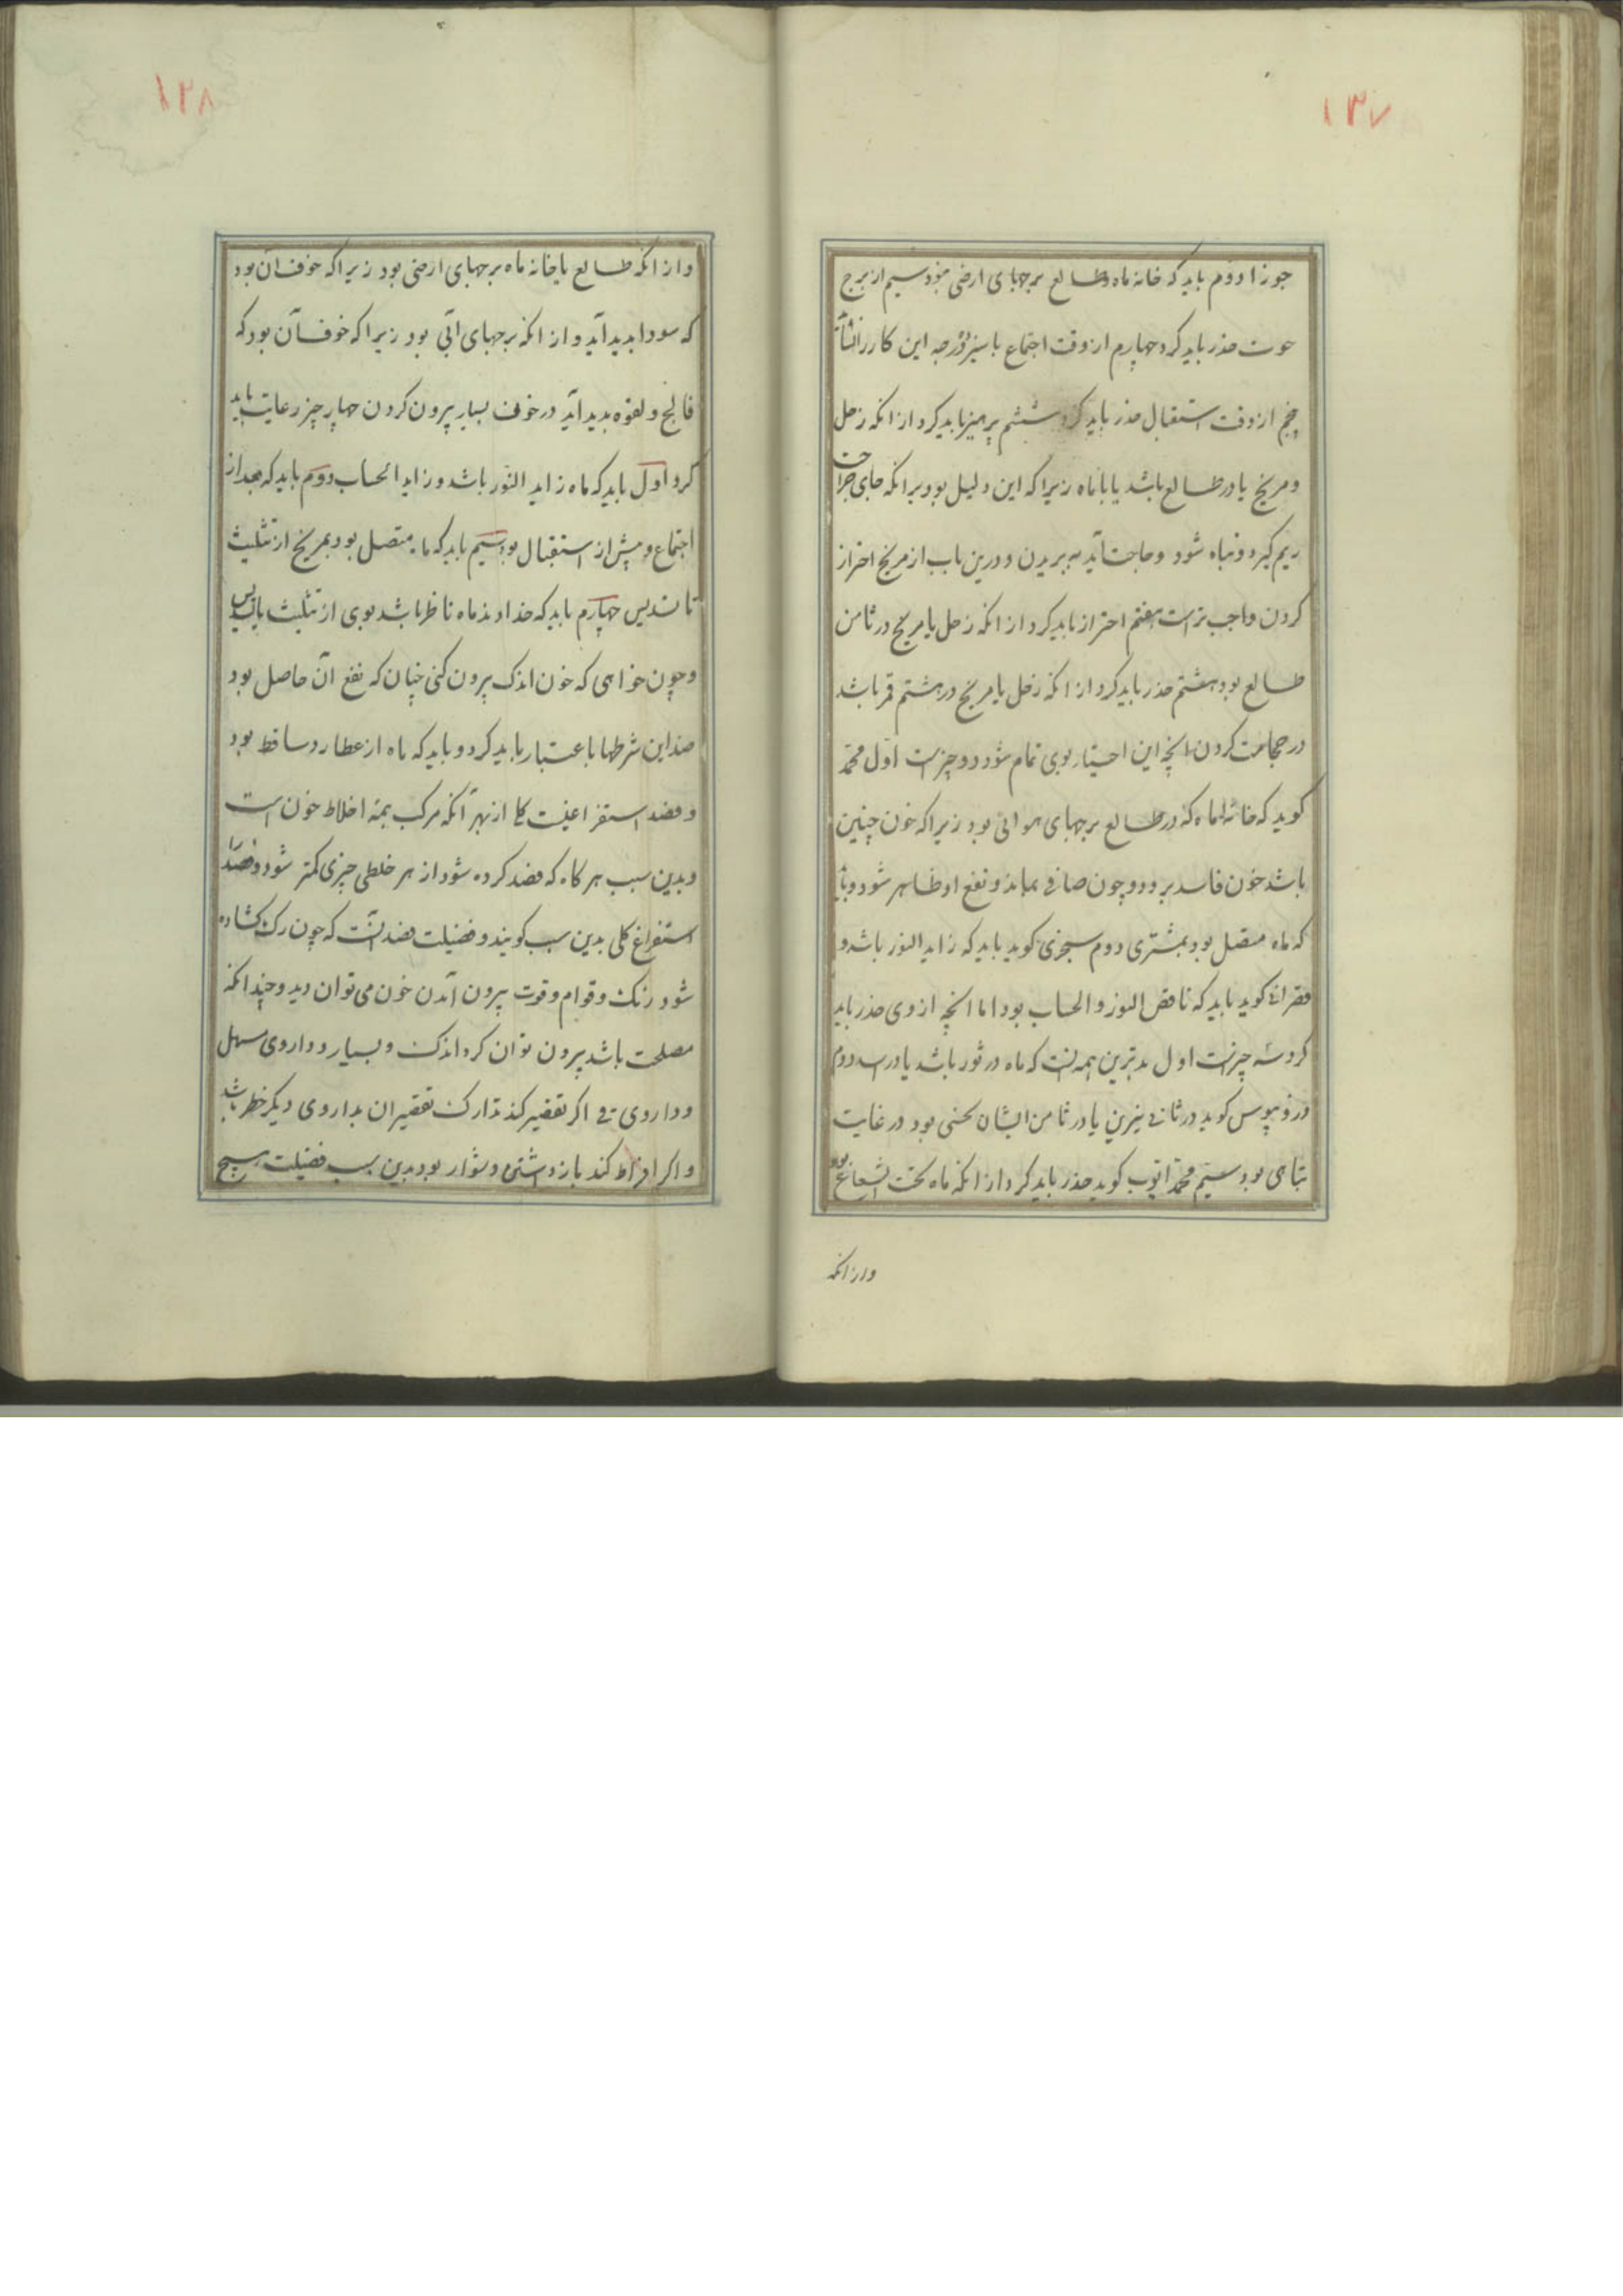 ۱۳۷
جوزا دوم باید که خانه ماه و طالع برجهای ارضی نبود سیم از برج
حوت حذر باید کرد چهارم از وقت اجتماع با سیزده درجه این کار را نشاید
پنجم از وقت استقبال حذر باید کرد ششم پرهیز باید کرد از انکه زحل
و مریخ یا در طالع باشد یا با ماه زیرا که این دلیل بود برانکه جای جراحت
ریم گیرد و تباه شود و حاجت آید به بریدن و درین باب از مریخ احتراز
کردن واجب تر است هفتم احتراز باید کرد از انکه زحل یا مریخ در ثامن
طالع بود هشتم حذر باید کرد از انکه زحل یا مریخ در هشتم قمر باشد
در حجامت کردن انچه این اختیار بوی تمام شود دو چیز است اول محمد
کوید که خانه ماه که در طالع برجهای هوائی بود زیرا که خون چنین
باشد خون فاسد برود و چون صافی بماند و نفع او ظاهر شود و باید
که ماه متصل بود بمشتری دوم سجزی کوید باید که زاید النور باشد و
قصرانی کوید باید که ناقص النور و الحساب بود اما انچه از وی حذر باید
کرد سه چیز است اول بدترین همه انست که ماه در ثور باشد یا در اسد دوم
کوید در ثانی نیرین یا در ثامن ایشان نحسی بود در غایت
تباهی بود سیم محمد ایوب کوید حذر باید کرد از انکه ماه تحت الشعاع بود
و از انکه
۱۳۸
و از انکه طالع یا خانه ماه برجهای ارضی بود زیرا که خوف ان بود
که سودا بدید آید و از انکه برجهای آبی بود زیرا که خوف آن بود که
فالج و لقوه بدید آید در خون بسیار بیرون کردن چهار چیز رعایت باید
کرد اول باید که ماه زاید النور باشد و زاید الحساب دوم باید که بعد از
اجتماع و پیش از استقبال بود سیم باید که ماه متصل بود بمریخ از تثلیث
تا تسدیس چهارم باید که خداوند ماه ناظر باشد بوی از تثلیث یا تسدیس
و چون خواهی که خون اندک بیرون کنی چنان که نفع آن حاصل بود
ضد این شرطها با عتبار باید کرد و باید که ماه از عطارد ساقط بود
و فصد استفراغیست کلی از بهر آنکه مرکب همه اخلاط خون است
و بدین سبب هر کاه که فصد کرده شود از هر خلطی چیزی کمتر شود و فصد را
استفراغ کلی بدین سبب کویند و فضیلت فصد انست که چون رک کشاده
شود رنک و قوام و قوت بیرون آمدن خون می توان دید و چندانکه
مصلحت باشد بیرون توان کرد اندک و بسیار و داروی مسهل
و داروی قی اکر تقصیر کند تدارک تقصیر ان بداروی دیکر خطر باشد
و اکر افراط کند باز داشتن دشوار بود بدین سبب فضیلت هیچ